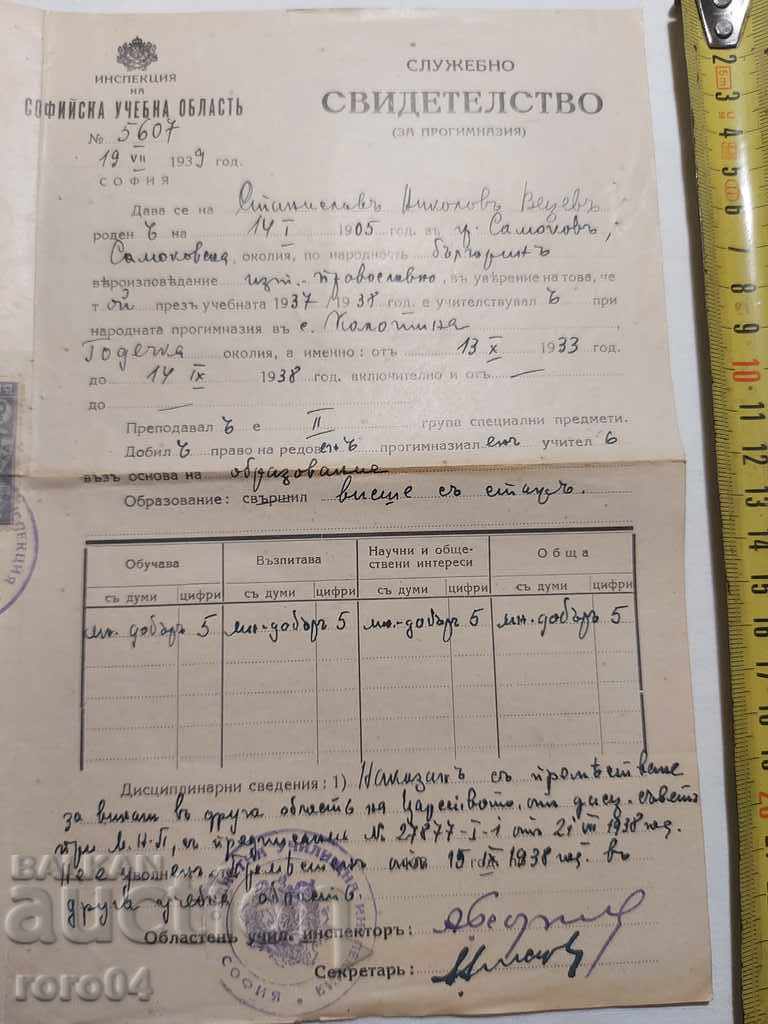 ИНСПЕКЦИЯ
НА
СОФИЙСКА УЧЕБНА ОБЛАСТЬ
№ 5607
19 VII 1939 год.
СОФИЯ
СЛУЖЕБНО
СВИДЕТЕЛСТВО
(ЗА ПРОГИМНАЗИЯ)
Дава се на Станиславъ Николовъ
роденъ на 14 I 1905 год. въ гр. Самоковъ,
Самоковска, околия, по народность българинъ
вѣроизповѣдание изт.-православно, въ увѣрение на това, че
той презъ учебната 1937/1938 год. е учителствувалъ при
народната прогимназия въ с. Калотина,
Годечка околия, а именно: отъ 13 X 1933 год.
до 14 IX 1938 год. включително и отъ —
до —
Преподавалъ е II група специални предмети.
Добилъ право на редовенъ прогимназиаленъ учител
възъ основа на образование
Образование: свършил висше съ стажъ.
Обучава
Възпитава
Научни и обществени интереси
Обща
съ думи цифри съ думи цифри съ думи цифри съ думи цифри
мн. добъръ 5 мн.-добъръ 5 мн.-добъръ 5 мн. добъръ 5
Дисциплинарни сведения: 1) Наказанъ съ промѣстване
за винаги въ друга область на Царството, отъ дисц. съветъ
при М.Н.П., съ предписание № 27877-I-1 отъ 21 VII 1938 год.
Не е уволненъ. Премѣстенъ отъ 15 IX 1938 год. въ
друга учебна область.
Областенъ учил. инспекторъ:
Секретарь:
СОФИЯ
ИНСПЕКЦИЯ
BALKAN
auction
roro04
2 3 4 5 6 7 8 9 10 11 12 13 14 15 16 17 18 19 20